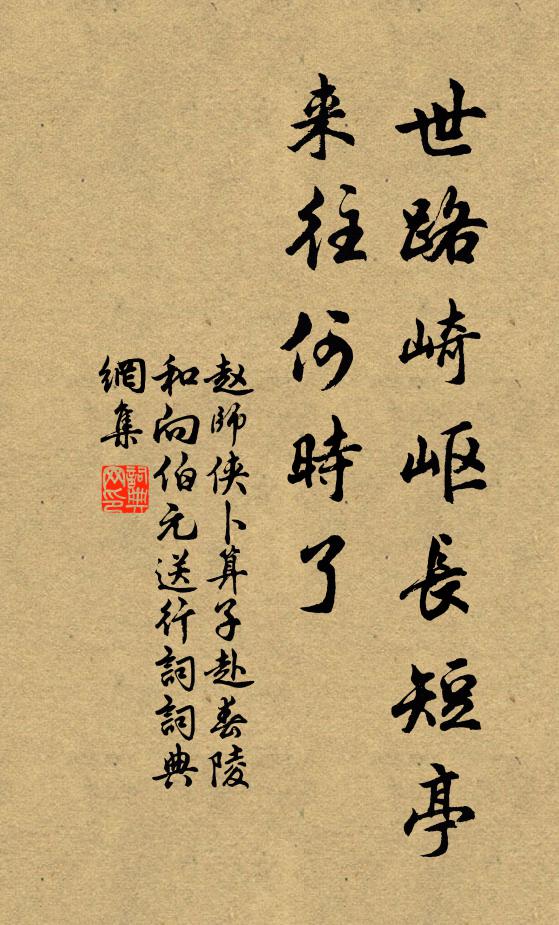 世路崎岖長短亭
来往何時了
赵師侠卜算子赴春陵
和向伯元送行詞詞典
網集
詞典网印